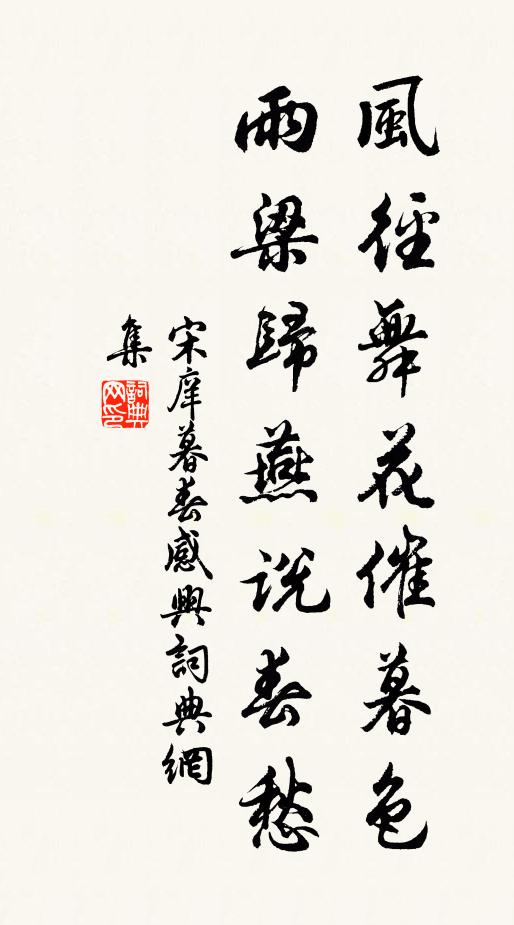 風徑舞花催暮色
雨梁歸燕說春愁
宋庠暮春感興詞典網
集
詞典網印